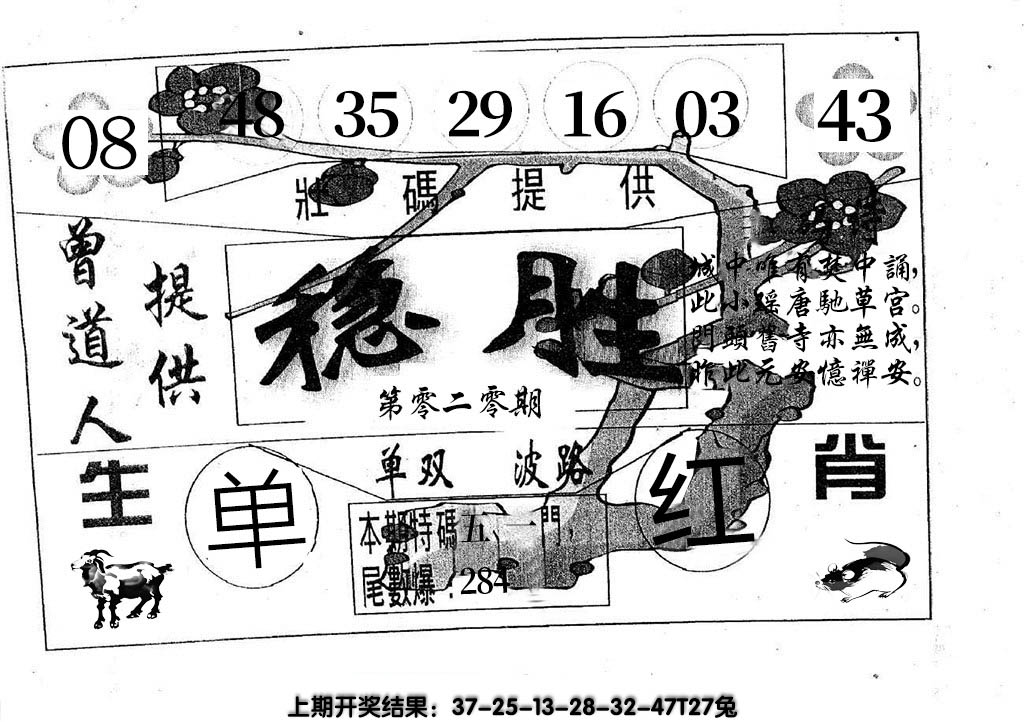 08 48 35 29 16 03 43
壯碼提供
特
曾道人
提供
稳胜
第零二零期
城中唯有楚中誦，
此小瑶唐馳草宫。
門頭舊寺亦無成，
昨此元安憶禪安。
单双 波路
生肖
单
红
本期特碼五、一門，
尾數爆：284
上期开奖结果：37-25-13-28-32-47T27兔